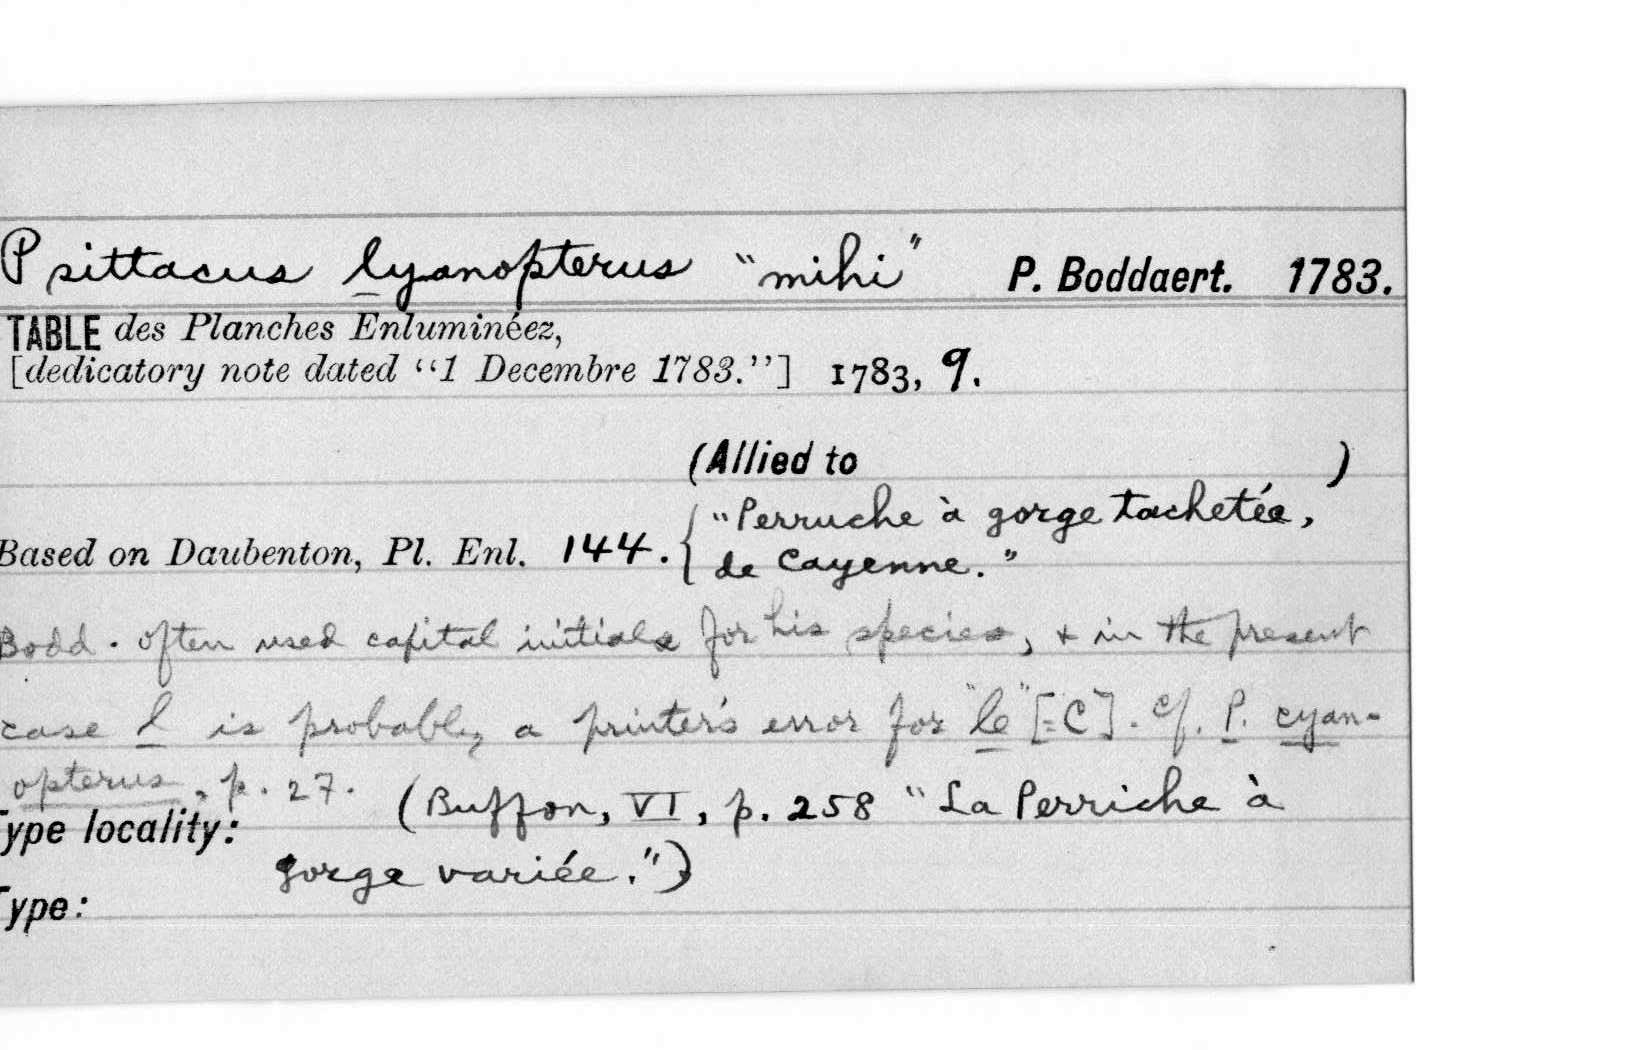 Psittacus lyanopterus "mihi" P. Boddaert. 1783.
TABLE des Planches Enluminéez,
[dedicatory note dated "1 Decembre 1783."] 1783, 9.
(Allied to )
"Perruche à gorge tachetée,
Based on Daubenton, Pl. Enl. 144. { de Cayenne."
Bodd. often used capital initials for his species, & in the present
case l is probably a printer's error for "le" [=C]. cf. P. cyan-
opterus, p. 27.
(Buffon, VI, p. 258 "La Perriche à
Type locality:
gorge variée.")
Type: